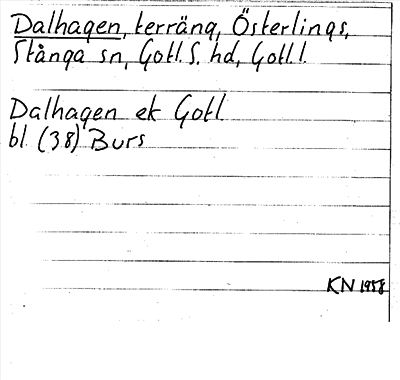 Dalhagen, terräng, Österlings,
Stånga sn, Gotl. S. hd, Gotl. l.
Dalhagen ek Gotl
bl. (38) Burs
KN 1958